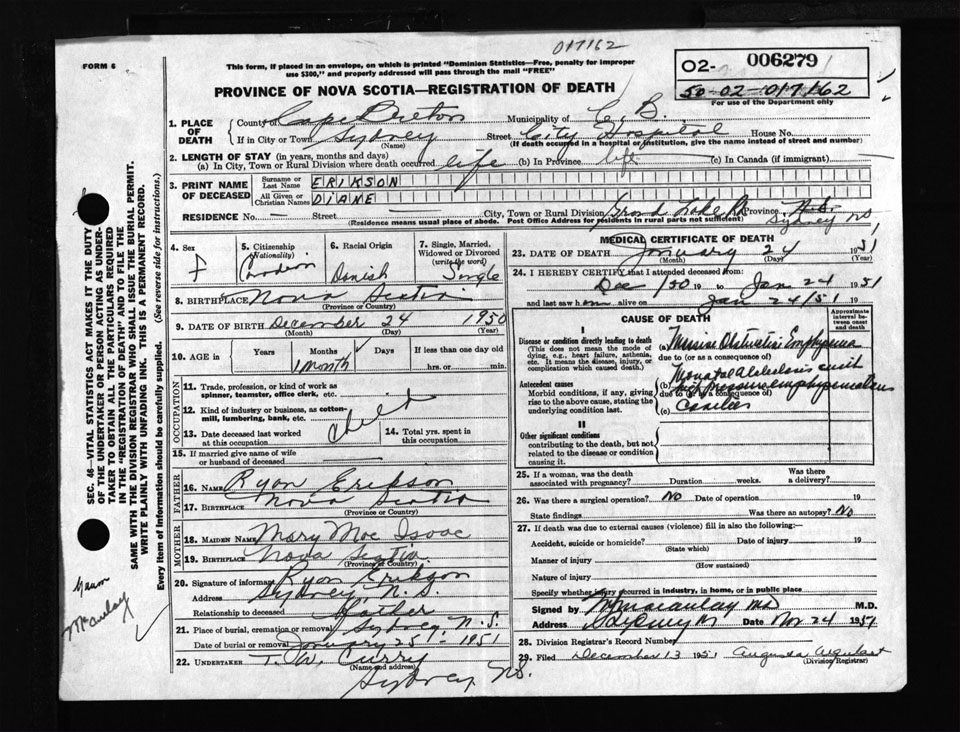 017162
FORM 6
This form, if placed in an envelope, on which is printed "Dominion Statistics—Free, penalty for improper
use $300," and properly addressed will pass through the mail "FREE"
02- 006279
50-02-017162
For use of the Department only
PROVINCE OF NOVA SCOTIA—REGISTRATION OF DEATH
1. PLACE OF DEATH
County of Cape Breton Municipality of C. B.
If in City or Town Sydney Street City Hospital House No.
(Name) (If death occurred in a hospital or institution, give the name instead of street and number)
2. LENGTH OF STAY (in years, months and days)
(a) In City, Town or Rural Division where death occurred life (b) In Province life (c) In Canada (if immigrant)
3. PRINT NAME OF DECEASED
Surname or Last Name ERIKSON
All Given or Christian Names DIANE
RESIDENCE No. — Street — City, Town or Rural Division Grand Lake Rd Province N.S.
Sydney NS
(Residence means usual place of abode. Post Office Address for residents in rural parts not sufficient)
4. Sex F
5. Citizenship (Nationality) Canadian
6. Racial Origin Danish
7. Single, Married, Widowed or Divorced (write the word) Single
8. BIRTHPLACE Nova Scotia
(Province or Country)
9. DATE OF BIRTH December 24 1950
(Month) (Day) (Year)
10. AGE in Years Months Days If less than one day old
1 month hrs. or min.
OCCUPATION
11. Trade, profession, or kind of work as spinner, teamster, office clerk, etc.
12. Kind of industry or business, as cotton-mill, lumbering, bank, etc.
child
13. Date deceased last worked at this occupation
14. Total yrs. spent in this occupation
15. If married give name of wife or husband of deceased
FATHER
16. NAME Ryan Erikson
17. BIRTHPLACE Nova Scotia
(Province or Country)
MOTHER
18. MAIDEN NAME Mary Mae Isaac
19. BIRTHPLACE Nova Scotia
(Province or Country)
20. Signature of informant Ryan Erikson
Address Sydney, N.S.
Relationship to deceased Father
21. Place of burial, cremation or removal Sydney N.S.
Date of burial or removal January 25 - 1951
22. UNDERTAKER T. W. Curry
(Name and address)
Sydney, NS.
MEDICAL CERTIFICATE OF DEATH
23. DATE OF DEATH January 24 1951
(Month) (Day) (Year)
24. I HEREBY CERTIFY that I attended deceased from:
Dec /50 19 to Jan 24 1951
and last saw h alive on Jan 24/51 19
CAUSE OF DEATH
Approximate interval between onset and death
I
Disease or condition directly leading to death
(This does not mean the mode of dying, e.g., heart failure, asthenia, etc. It means the disease, injury, or complication which caused death.)
(a) Massive Obstructive Emphysema
due to (or as a consequence of)
Antecedent causes
Morbid conditions, if any, giving rise to the above cause, stating the underlying condition last.
(b) Neonatal Atelectasis with
high pressure emphysematous
due to (or as a consequence of)
(c) Cavities
II
Other significant conditions
contributing to the death, but not related to the disease or condition causing it.
25. If a woman, was the death associated with pregnancy? Duration weeks. Was there a delivery?
26. Was there a surgical operation? No Date of operation 19
State findings Was there an autopsy? No
27. If death was due to external causes (violence) fill in also the following:-
Accident, suicide or homicide? Date of injury 19
(State which)
Manner of injury
(How sustained)
Nature of injury
Specify whether injury occurred in industry, in home, or in public place
Signed by Macaulay MD M.D.
Address Sydney NS Date Nov 24 1951
28. Division Registrar's Record Number
29. Filed December 13 1951 Augusta Urquhart
(Division Registrar)
SEC. 46—VITAL STATISTICS ACT MAKES IT THE DUTY
OF THE UNDERTAKER OR PERSON ACTING AS UNDER-
TAKER TO OBTAIN ALL THE PARTICULARS REQUIRED
IN THE "REGISTRATION OF DEATH" AND TO FILE THE
SAME WITH THE DIVISION REGISTRAR WHO SHALL ISSUE THE BURIAL PERMIT.
WRITE PLAINLY WITH UNFADING INK. THIS IS A PERMANENT RECORD.
Every item of Information should be carefully supplied. (See reverse side for instructions.)
McAulay